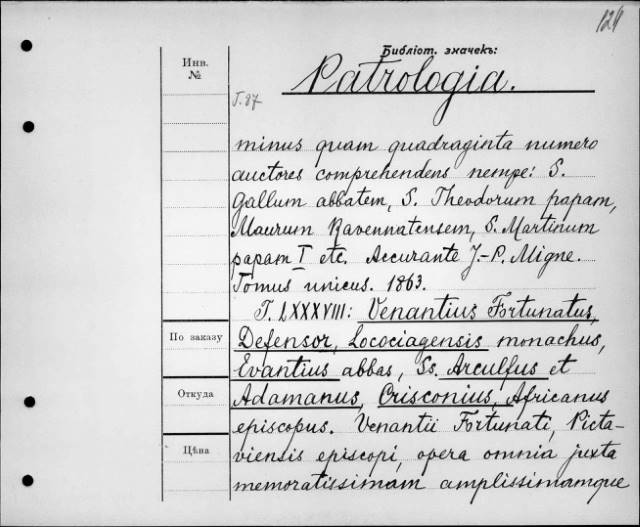 124
Библіот. значекъ:
Инв.
№
Patrologia.
T. 87
minus quam quadraginta numero
auctores comprehendens nempe: S.
Gallum abbatem, S. Theodorum papam,
Maurum Ravennatensem, S. Martinum
papam I etc. Accurante J.-P. Migne.
Tomus unicus. 1863.
T. LXXXVIII: Venantius Fortunatus,
По заказу
Defensor, Locociagensis monachus,
Evantius abbas, Ss. Arculfus et
Откуда
Adamanus, Crisconius, Africanus
episcopus. Venantii Fortunati, Picta-
Цѣна
viensis episcopi, opera omnia juxta
memoratissimam amplissimamque